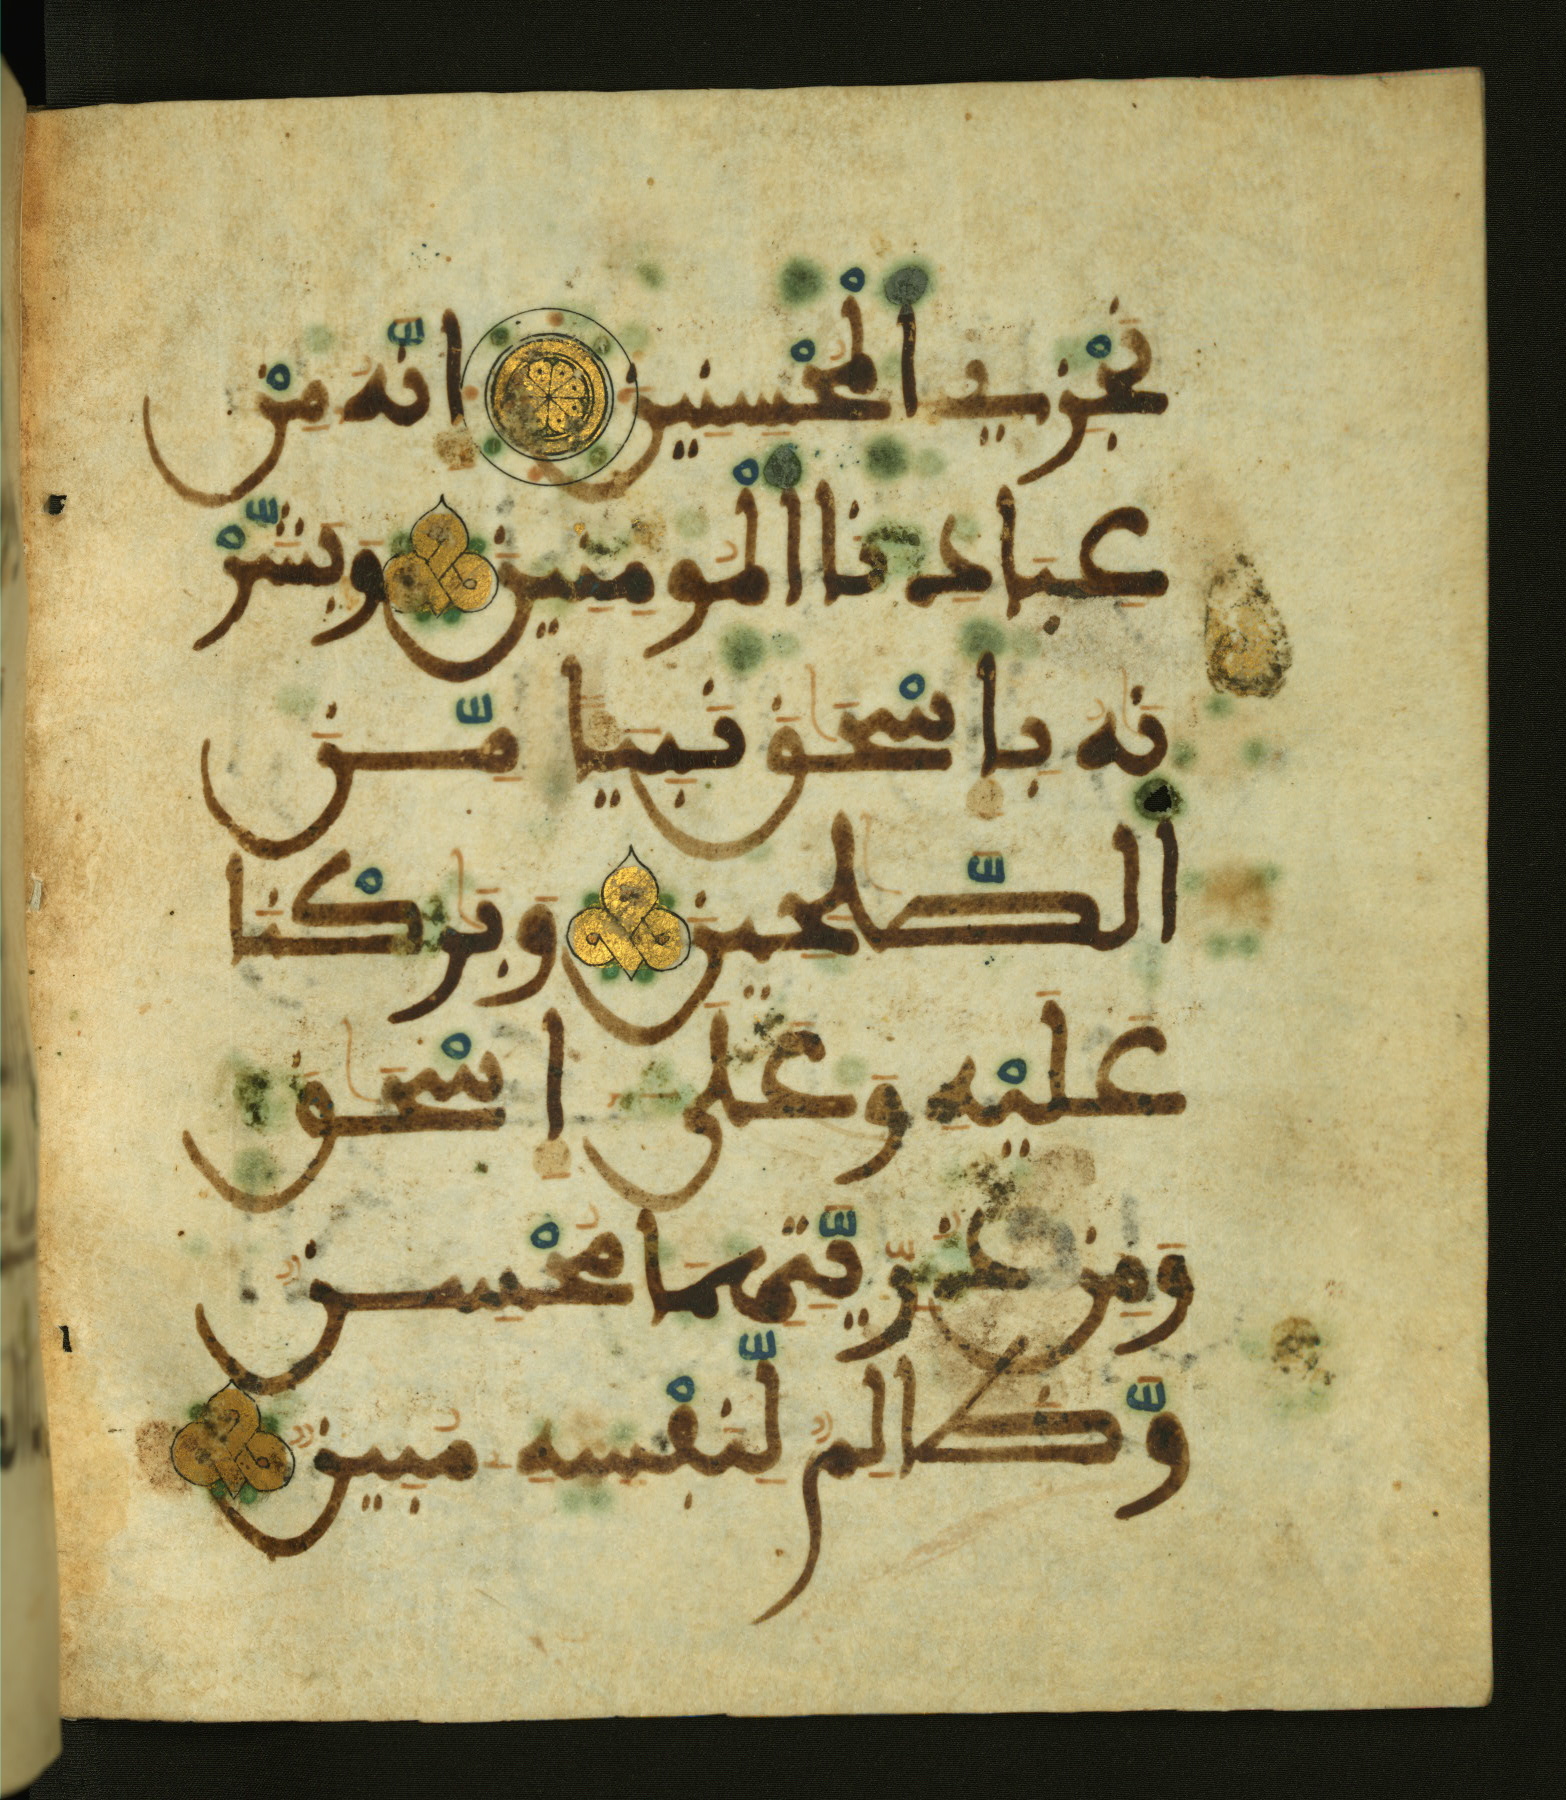 نَجْزِي اَ۬لْمُحْسِنِينَ إِنَّهُۥ مِنْ
عِبَادِنَا اَ۬لْمُومِنِينَ وَبَشَّرْ
نَٰهُ بِإِسْحَٰقَ نَبِيـًٔا مِّنَ
اَ۬لصَّٰلِحِينَ وَبَٰرَكْنَا
عَلَيْهِ وَعَلَىٰ إِسْحَٰقَ
وَمِن ذُرِّيَّتِهِمَا مُحْسِنٌ
وَظَالِمٌ لِّنَفْسِهِ مُبِينٌ